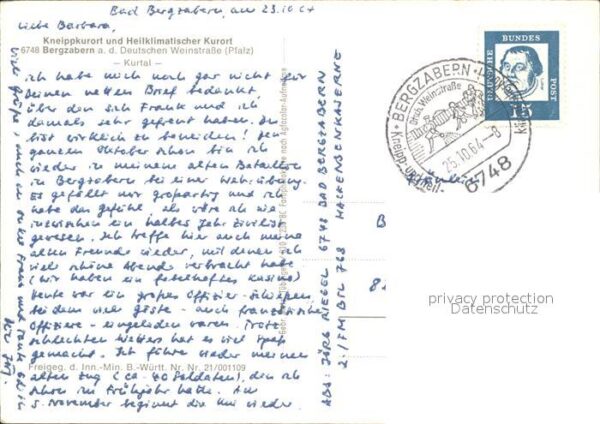 Bad Bergzabern, am 23.10.64
Liebe Barbara,
Kneippkurort und Heilklimatischer Kurort
6748 Bergzabern a. d. Deutschen Weinstraße (Pfalz)
– Kurtal –
ich habe mich noch gar nicht für
Deinen netten Brief bedankt,
über den sich Frank und ich
damals sehr gefreut haben. Du
bist wirklich zu beneiden! Den
ganzen Oktober schon bin ich
wieder in meinem alten Bataillon
in Bergzabern bei einer Wehrübung.
Es gefällt mir großartig und ich
habe das Gefühl als wäre ich nie
inzwischen ein halbes Jahr Zivilist
gewesen. Ich treffe hier auch meine
alten Freunde wieder, mit denen ich
viel schöne Abende verbracht habe
(wir haben ein fabelhaftes Kasino)
Heute war ein großes Offizier-
bei dem viele Gäste - auch französische
Offiziere - eingeladen waren. Trotz
schlechten Wetters hat es viel Spaß
gemacht. Ich führe wieder meinen
alten Zug (ca. 40 Soldaten), den ich
schon im Frühjahr hatte. Am
5. November beginnt die Uni wieder.
Freigeg. d. Inn.-Min. B.-Württ. Nr. Nr. 21/001109
Viele Grüße, auch an Onkel Franz und Tante Edith
Dein Jörg.
ABS: JÖRG RIEGEL 6748 BAD BERGZABERN
2./FM BTL 768 MACKENSENKASERNE
DEUTSCHE BUNDES POST
15
BERGZABERN
Dtsch. Weinstraße
25.10.64-8
6748
privacy protection
Datenschutz